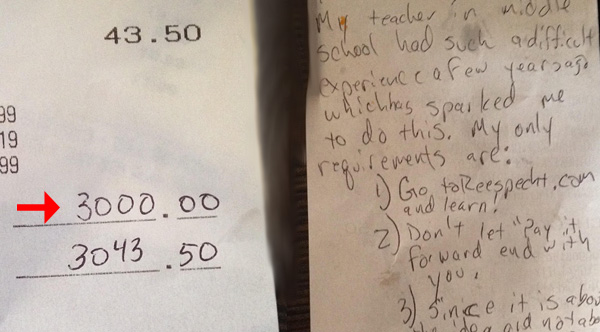 43.50
99
19
99
3000.00
3043.50
My teacher in middle
school had such a difficult
experience a few years ago
which has sparked me
to do this. My only
requirements are:
1) Go to Reespecht.com
and learn!
2) Don't let "Pay it
forward end with
you.
3) Since it is about